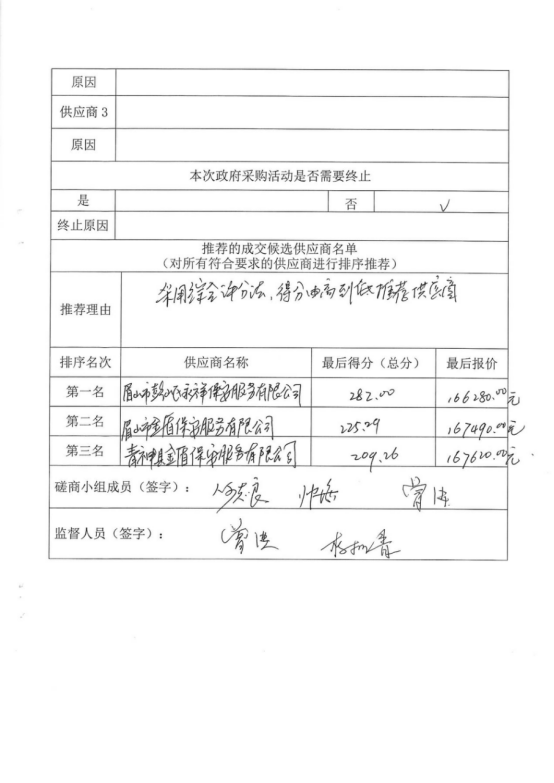 原因
供应商 3
原因
本次政府采购活动是否需要终止
是 否 √
终止原因
推荐的成交候选供应商名单
（对所有符合要求的供应商进行排序推荐）
推荐理由 采用综合评分法，得分由高到低推荐供应商
排序名次 供应商名称 最后得分（总分） 最后报价
第一名 眉山市彭山区永祥保安服务有限公司 282.00 166280.00元
第二名 眉山市金盾保安服务有限公司 225.29 167490.00元
第三名 青神县金盾保安服务有限公司 209.26 167620.00元
磋商小组成员（签字）：
监督人员（签字）：